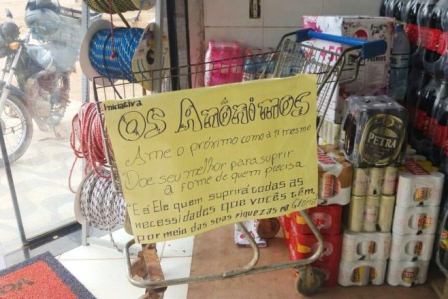 Eminiativa
Os Anônimos
Ame o próximo como a ti mesmo
Doe seu melhor para suprir
a fome de quem precisa
"E é Ele quem suprirá todas as
necessidades que vocês têm,
por meio das suas riquezas na Glória
PETRA